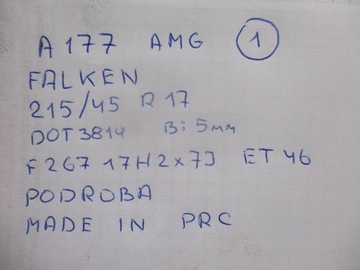 A 177 AMG 1
FALKEN
215/45 R 17
DOT 3814 B: 5mm
F 267 17H2x7J ET 46
PODROBA
MADE IN PRC